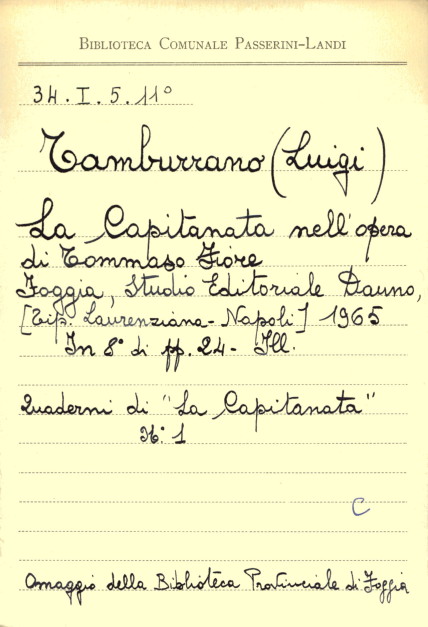 BIBLIOTECA COMUNALE PASSERINI-LANDI
34. I. 5. 11°
Tamburrano (Luigi)
La Capitanata nell'opera
di Tommaso Fiore
Foggia, Studio Editoriale Dauno,
[Tip. Laurenziana - Napoli] 1965
In 8° di pp. 24 - Ill.
Quaderni di "La Capitanata"
N° 1
C
Omaggio della Biblioteca Provinciale di Foggia